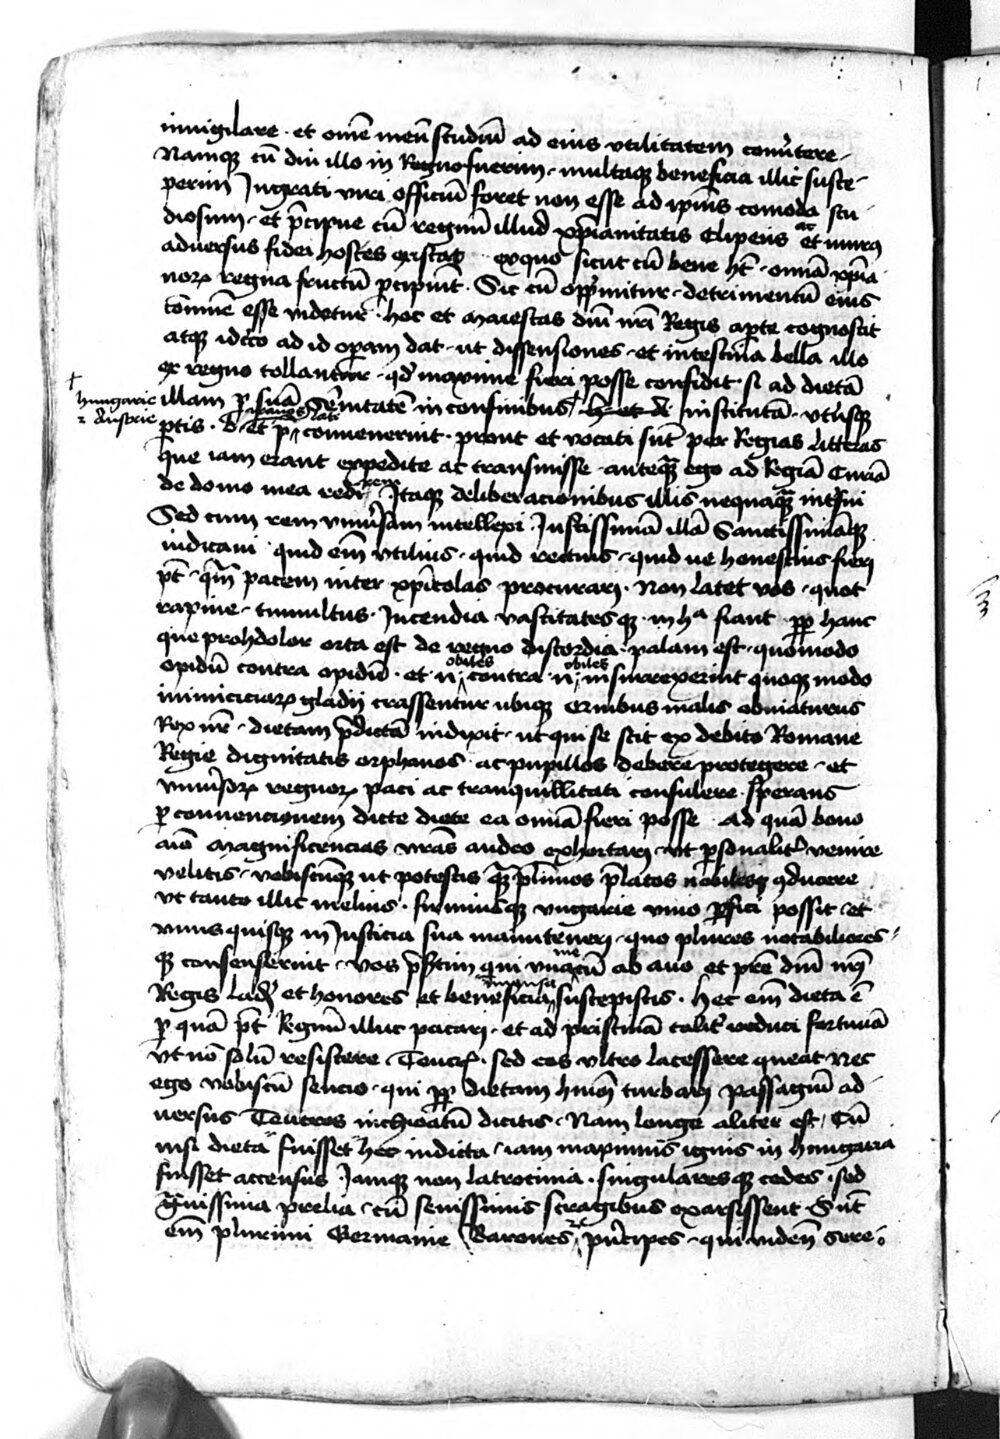 invigilare · et om̄e meū studiū ad eius utilitatem conv̄tere ·
Namq3 cū diu illo in Regno fuerim · multaq3 beneficia illic susce-
perim Ingrati viri officiū foret non esse ad ip̄ius comoda stu-
diosum · et p̄cipue cū regnū illud xp̄ianitatis clipeus ac et murus
adversus fidei hostes existat · exquo sicut cū bene h̄t · omā xp̄ia-
noꝝ regna fructū p̄cipiūt · Sic cū opp̄mitur · detrimentū eius
com̄une esse videtur · hoc et Maiestas dn̄i nr̄i Regis ap̄te cognoscit
atq3 idcirco ad id op̄am dat · ut dissensiones · et intestina bella illo
ex regno tollantur · qd̄ maxime fieri posse confidit si ad dietā
illam p̄ suā Ser̄nitatē in confinibus † H · et A · institutā · utriusq3
† hungarie
⁊ Austrie
p̄tis · b · et p̄ convenerint · prout et vocati sūt per Regias litteras
que iam erant expedite ac transmisse · anteq̄ ego ad Regiā Curiā
de domo mea redi · Itaq3 deliberacionibus illis nequaq̄ int̄fui
Sed cum rem univ̄sam intellexi · Iustissimā illā Sanctissimāq3
iudicavi · quid em̄ utilius · quid rectius · quid ve honestius fieri
pt̄ · q̄m pacem inter xp̄icolas procurari · Non latet vos · quot
rapine · tumultus · Incendia vastitatesq3 · in hᵃ fiant pp̄ hanc
que prohdolor orta est de regno discordia · palam est · quomodo
opidū contra opidū · et nobiles contra nobiles insurrexerint quoq3 modo
inimiciciaꝝ gladij crassentur ubiq3 Omibus malis obviaturus
Rex nr̄ · dietam p̄dictā indixit · ut qui se scit ex debito Romane
Regie dignitatis orphanos · ac pupillos debere protegere · et
univ̄soꝝ regnoꝝ paci ac tranquillitati consulere · sperans
p̄ convencionem dicte diete ea omā fieri posse · Ad quā bono
aīo Magnificencias vr̄as audeo exhortari · ut p̄sonalit̄ venire
velitis · vobiscūq3 ut potestis q̄ plīmos p̄latos nobilesq3 9ducere
ut tanto illic melius · firmiusq3 ungarie unio p̄fici possit · et
unusquisq3 in Iusticia sua manuteneri · quo plures notabiliores-
q3 consenserint · vos p̄s̄tim qui unacū ab avo et pr̄e dn̄i mei
Regis Lad̄ · et honores et beneficia suscepistis · Hec em̄ dieta ē
p̄ quā pt̄ Regnū illuc pacari · et ad pristinā talit̄ reduci fortunā
ut nō solū resistere · Teucris · sed eos ultro lacessere queat Nec
ego vobiscū sencio · qui pp̄ dietam huiūi turbari passagiū ad-
versus Teucros inchoatū dicitis · Nam longe aliter est / Cū
nisi dieta fuisset hec indicta · iam maximus ignis in hungaria
fuisset accensus · Iamq3 non latrocinia · singularesq3 cedes · sed
gr̄vissima prelia · cū sevissimis stragibus exarsissent · Sūt
em̄ plurimi Germanie Barones ⁊ p̄ncipes · qui viden̄ Sere ·